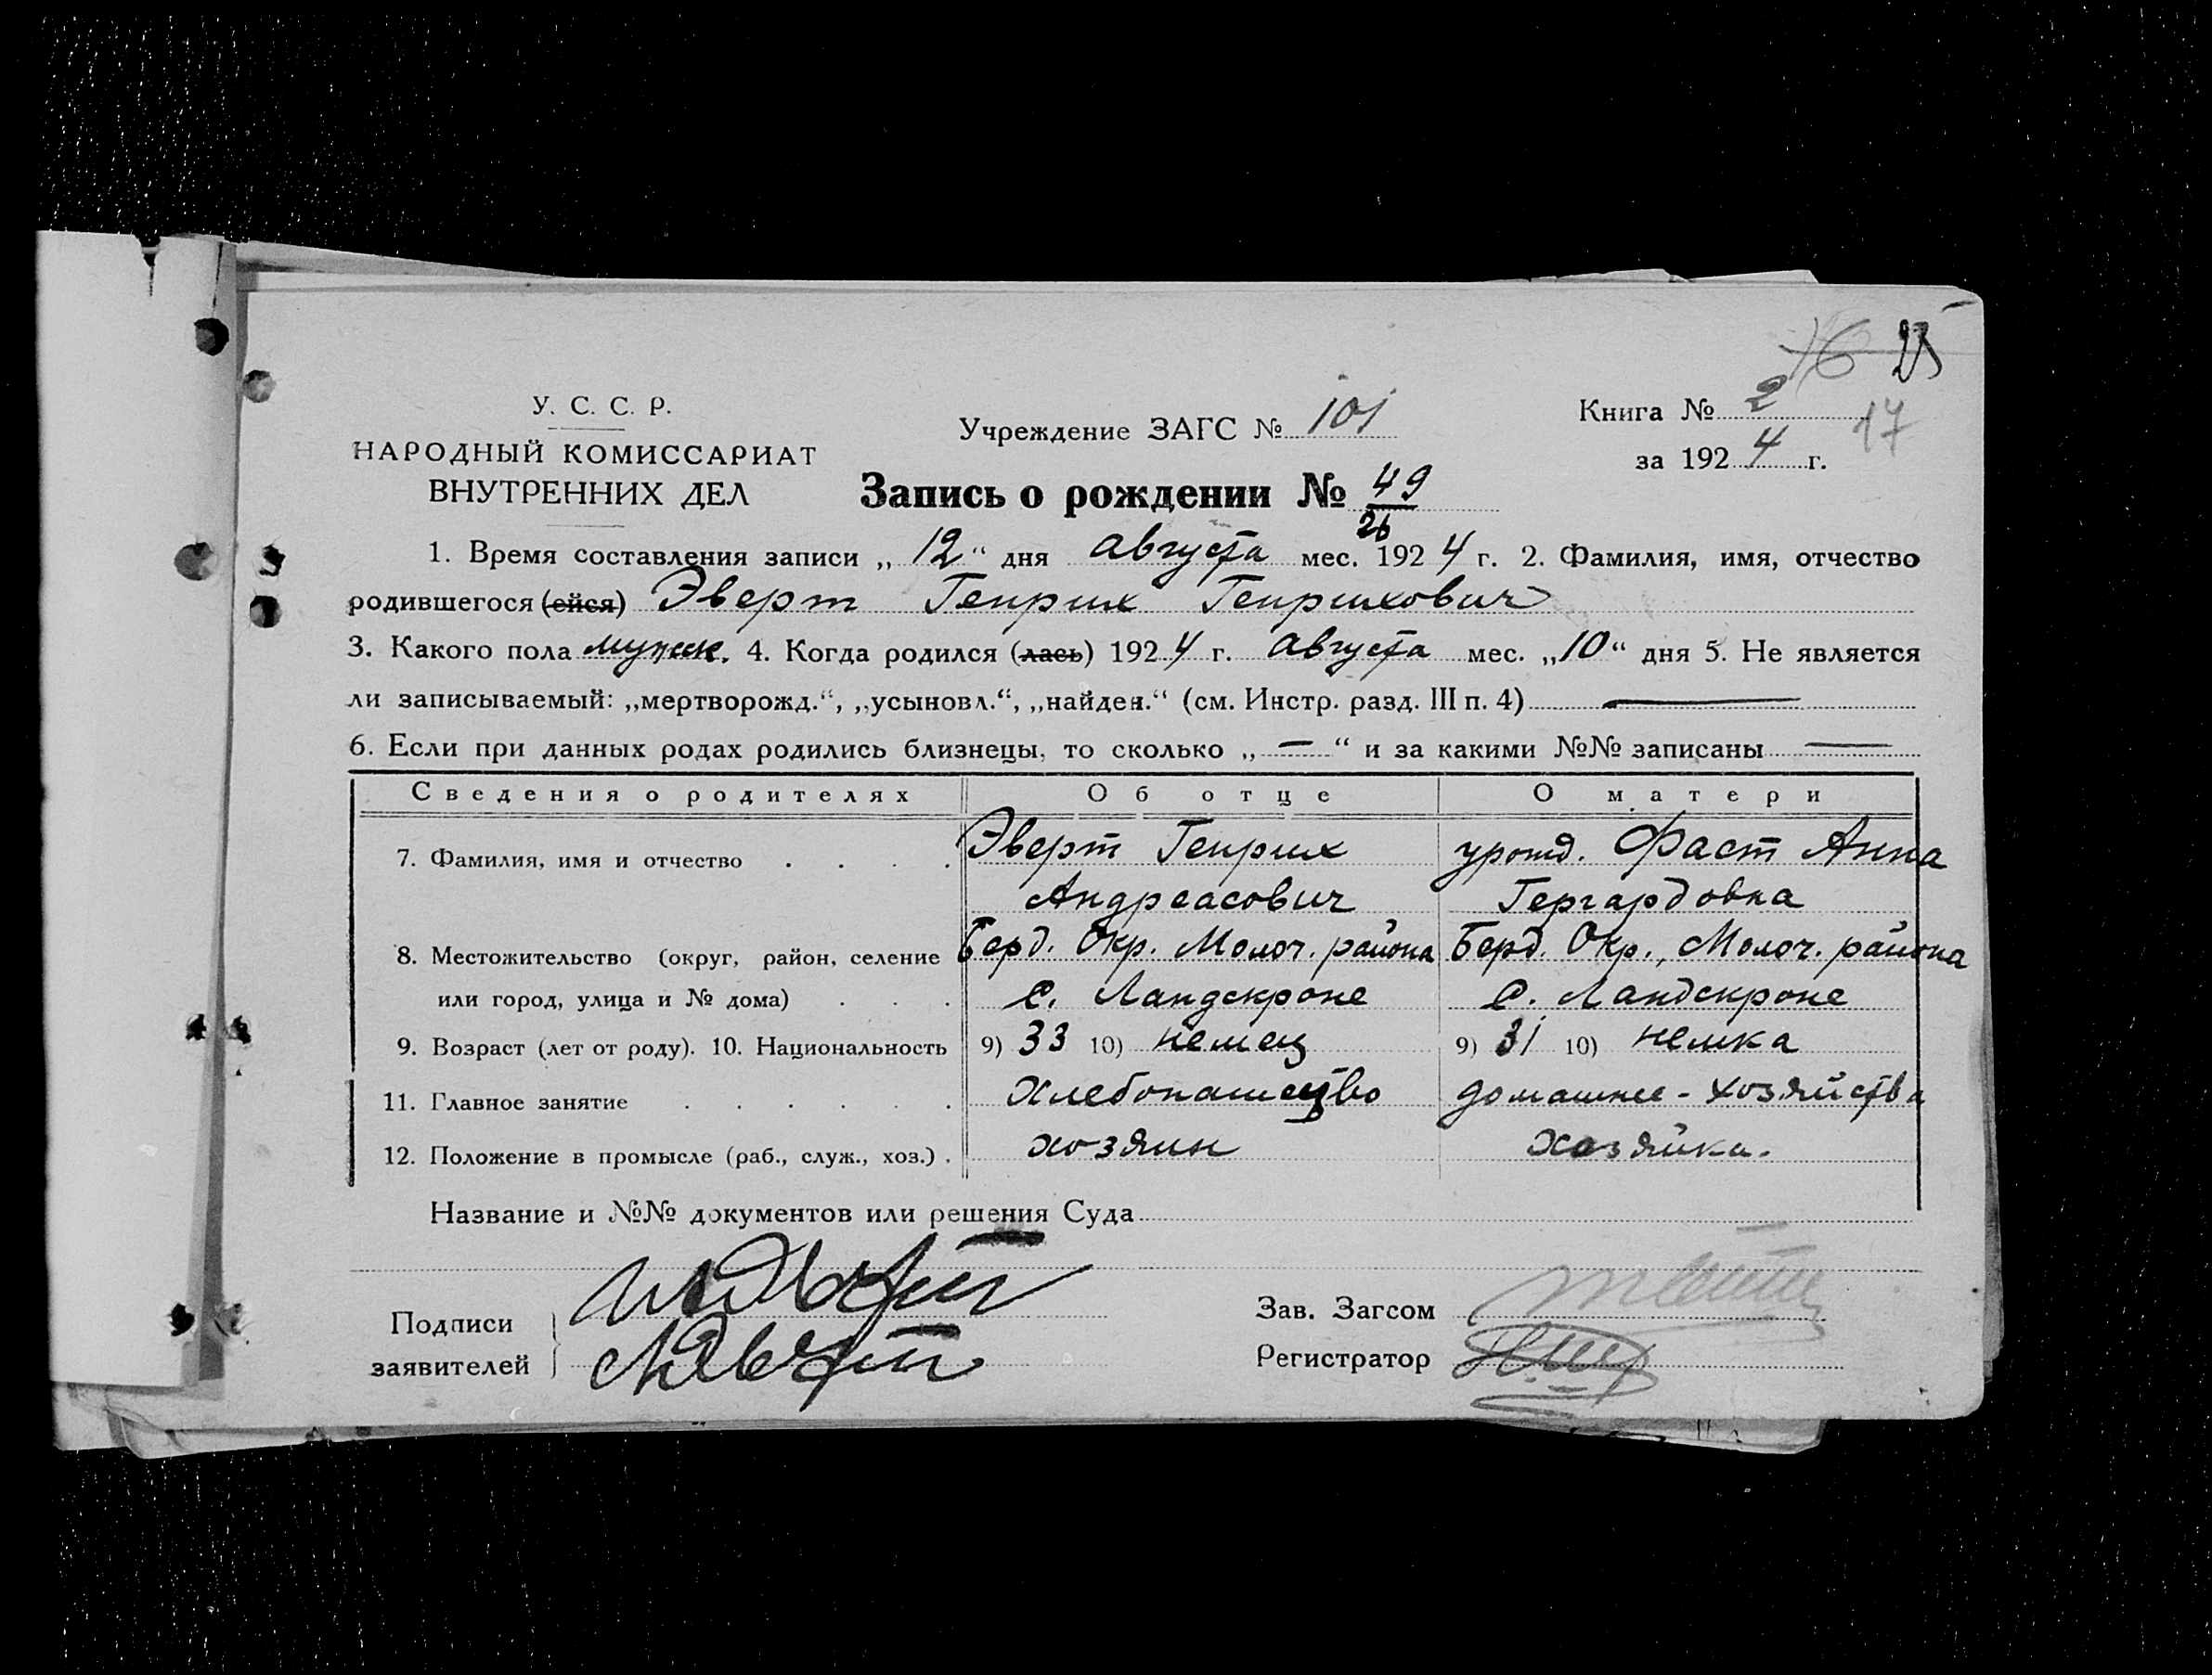 16 25
У. С. С. Р.
НАРОДНЫЙ КОМИССАРИАТ
ВНУТРЕННИХ ДЕЛ
Учреждение ЗАГС № 101
Книга № 2
17
за 1924 г.
Запись о рождении № 49
26
1. Время составления записи „12“ дня августа мес. 1924 г. 2. Фамилия, имя, отчество
родившегося (ейся) Эверт Генрих Генрихович
3. Какого пола мужск. 4. Когда родился (лась) 1924 г. августа мес. „10“ дня 5. Не является
ли записываемый: „мертворожд.“, „усыновл.“, „найден.“ (см. Инстр. разд. III п. 4) —
6. Если при данных родах родились близнецы, то сколько „—“ и за какими №№ записаны —
Сведения о родителях Об отце О матери
7. Фамилия, имя и отчество . . . . Эверт Генрих урожд. Фаст Анна
Андреасович Гергардовна
8. Местожительство (округ, район, селение Берд. Окр. Молоч. района Берд. Окр., Молоч. района
или город, улица и № дома) . . . с. Ландскроне с. Ландскроне
9. Возраст (лет от роду). 10. Национальность 9) 33 10) немец 9) 31 10) немка
11. Главное занятие . . . . . . Хлебопашество домашнее-хозяйства
12. Положение в промысле (раб., служ., хоз.) . хозяин хозяйка.
Название и №№ документов или решения Суда
Подписи
заявителей
Зав. Загсом
Регистратор